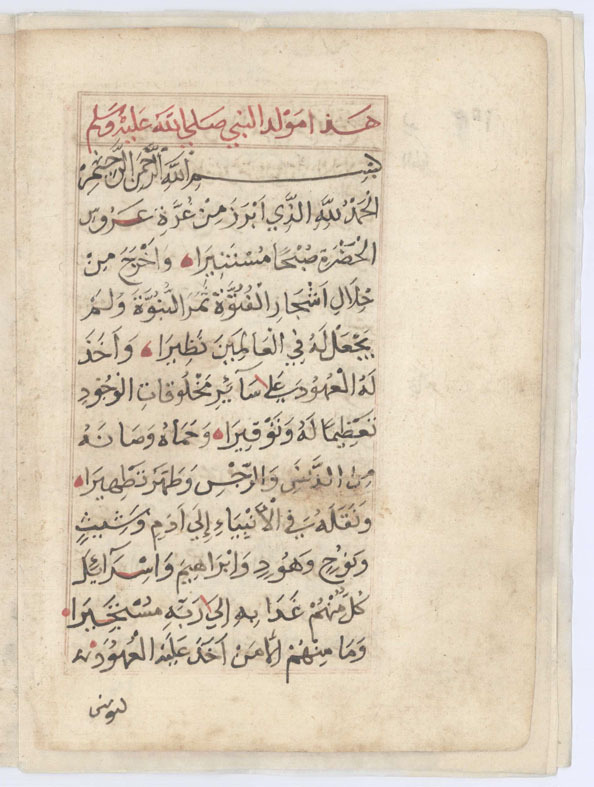 هذا مولد النبي صلي الله عليه وسلم
بسم الله الرحمن الرحيم
الحَمْدُ لِلَّهِ الَّذِي اَبْرَزَ مِنْ غُرَّةِ عَرُوسِ
الْحَضْرَةِ صُبْحًا مُسْتَنِيرًا وَاَخْرَجَ مِنْ
خِلَالِ اَشْجَارِ الْفُتُوَّةِ ثَمَرَ النُّبُوَّةِ وَلَمْ
يَجْعَلْ لَهُ فِي الْعَالَمِينَ نَظِيرًا وَاَخَذَ
لَهُ الْعُهُودَ عَلي سَآئِرِ مَخْلُوقَاتِ الْوُجُودِ
تَعْظِيمًا لَهُ وَتَوْقِيرًا وَحَمَاهُ وَصَانَهُ
مِنَ الدَّنَسِ وَالرِّجْسِ وَطَهَّرَ تَطْهِيرًا
وَنَقَلَهُ فِي الْاَنْبِيَاءِ إِلَي آدَمَ وَشِيثٍ
وَنُوحٍ وَهُودٍ وَإِبْرَاهِيمَ وَإِسْرَآئِلَ
كُلٌّ مِنْهُمْ غَدَا بِهِ إِلَي رَبِّهِ مُسْتَخِيرًا
وَمَا مِنْهُمْ إِلَّا مَنْ اَخَذَ عَلَيْهِ الْعُهُودَ